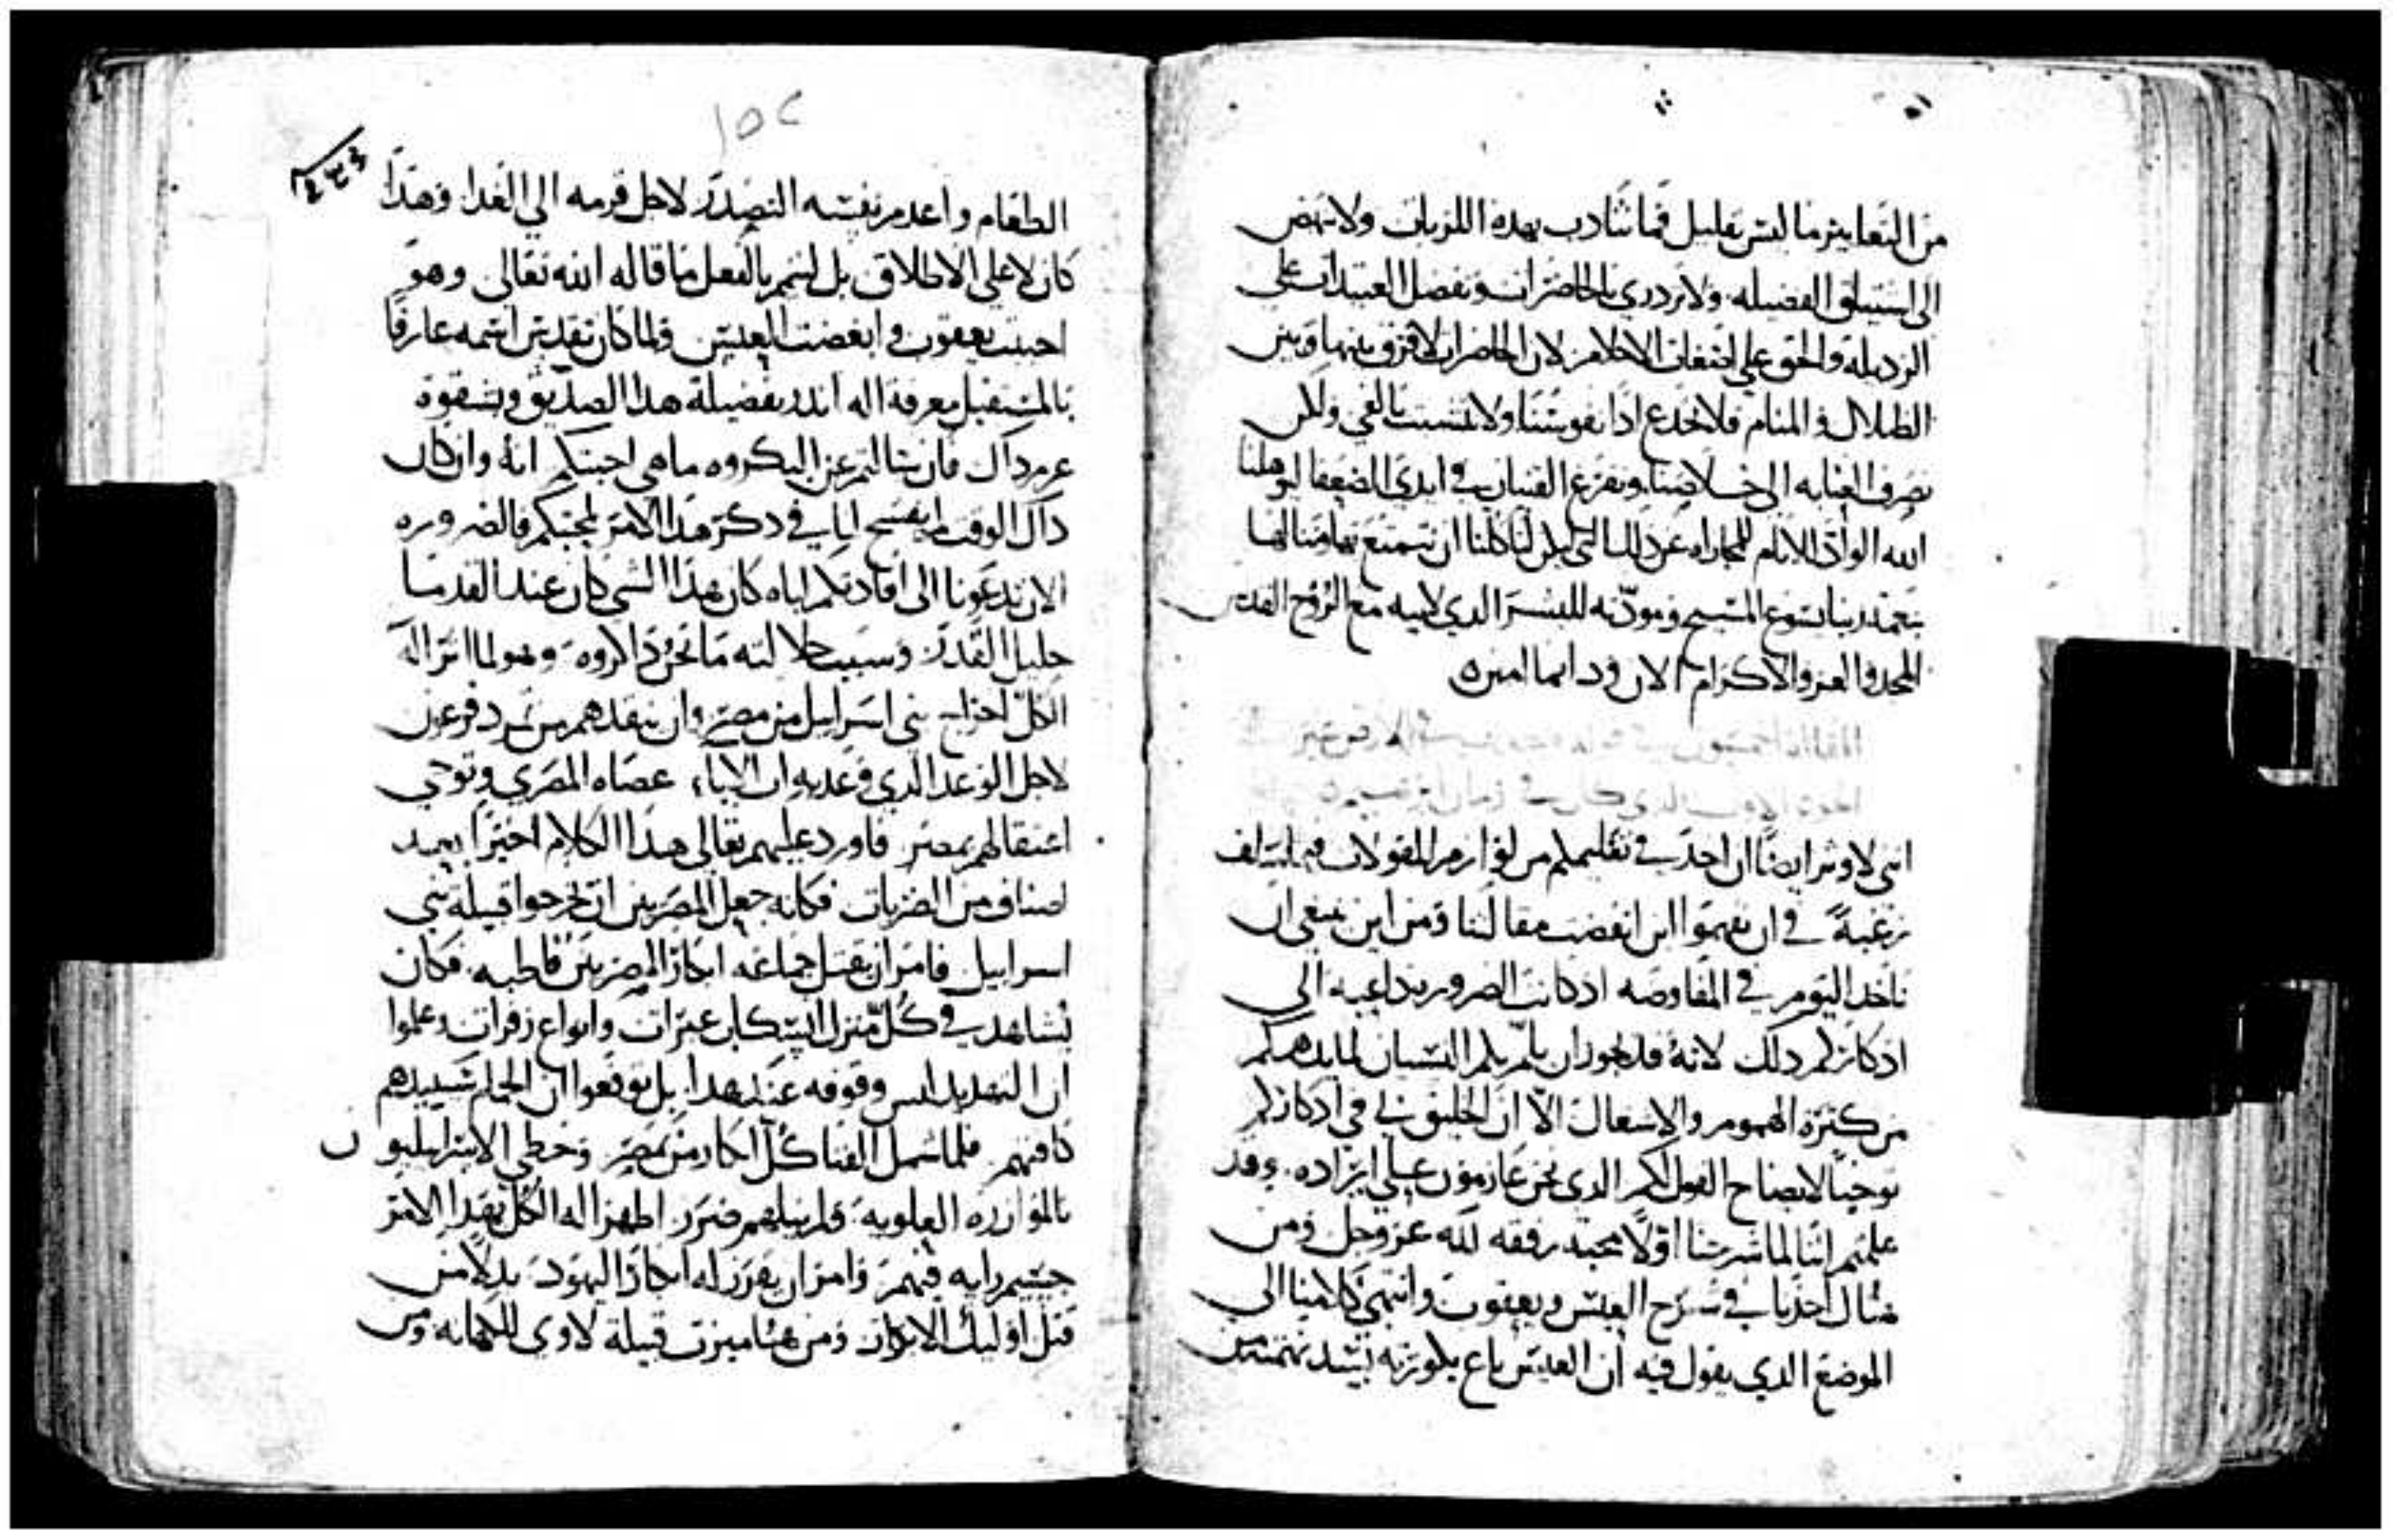 من التعابير ما ليس بقليل فما نتادب بهده اللزبات ولا ننهض
الى استباق الفضيله ولا نزدري بالحاضرات ونفضل العتيدات على
الرديله والحق على اضغاث الاحلام لان الحاضرات لا فرق بينها وبين
الظلال والمنام فلا نخدع ادًا نفوسنا ولا نتشبث بالفي ولكن
نصرف العنايه الى خلاصنا ونفرغ القنيان في ايدي الضعفا ليوهلنا
الله الوافر الانام للمجاراه عن دلك التي يكن لنا كلنا ان نتمتع بها مَنالها
بنعمة ربنا يسوع المسيح ومودّته للبشر الدي لابيه مع الروح القدس
المجد والعز والاكرام الان ودايما امين
انني لاوثر ايضًا ان اخد في تعليمكم من لوازم المقولات فيما سلف
رغبةً في ان تفهموا اين انفضت مقالتنا ومن اين ينبغي ان
ناخد اليوم في المفاوضه اد كانت الضروره داعيه الى
ادكاركم دلك لانهُ قد يجوز ان يلمّ بكم النسيان لما يدهمكم
من كثرة الهموم والاشغال الّا ان الخليق بي في ادكاركم
توخيًا لايضاح القول لكم الدي نحن عازمون على ايراده وقد
علمتم اننا لما شرعنا اوّلًا بمحبة رفقه لله عز وجل ومن
هناك اخدنا في شرح العيس ويعقوب وانتهى كلامنا الى
الموضع الدي يقول فيه ان العيس باع بكوريته بيسد نهمته من
١٥٢
٢٣٤
الطعام واعدم نفسه التصدّر لاجل قرمه الى الغدا وهدا
كان لا على الاطلاق بل ليتم بالفعل ما قاله الله تعالى وهو
احببت يعقوب وابغضت العيس ولما كان تقديس اسمه عارفًا
بالمستقبل معرفة اله اندر بفضيلة هدا الصديق وبشقوة
عزم داك فان سالتم عن البكروه ما هي اجبتكم انهُ وان كان
داك الوقت لم يفسح لنا في دكر هدا الامر لمحبتكم فالضروره
الان تدعونا الى افادتكم اياه كان هدا الشي كان عند القدما
جليل القدر وسبب جلالته ما نحن داكروه وهو لما اثر اله
الكل اخراج بني اسراييل من مصر وان ينقدهم من تمرد فرعون
لاجل الوعد الدي وعد به اب الابا، عصاه المصري وتوخي
اعتقالهم بمصر فاورد عليهم تعالى هدا الكلام اخيرًا بعد
اصناف من الضربات فكانه جعل المصريين ان يخرجوا قبيلة بني
اسراييل فامر ان يقتل جماعه ابكار المصريين قاطبه فكان
يشاهد في كُلّ منزل التسكاب عبرات وانواع زفرات وعلموا
ان التهديد ليس وقوفه عند هدا بل توقعوا ان الحمام سيبيدهم
كافتهم فلما شمل الفنا كُلّ ابكار من بمصر وحظي الاسراييليون
بالموازره العلويه فلم ينلهم ضرر اظهر اله الكل بهدا الامر
جسيم رايه فيهم وامر ان يفرز له ابكار اليهود بدلًا من
قتل اوليك الابكار ومن هنا ميزت قبيلة لاوي للكهانه ومن